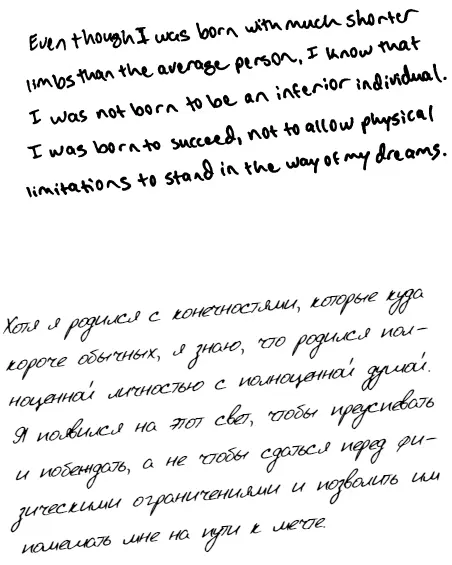 Even though I was born with much shorter
limbs than the average person, I know that
I was not born to be an inferior individual.
I was born to succeed, not to allow physical
limitations to stand in the way of my dreams.
Хотя я родился с конечностями, которые куда
короче обычных, я знаю, что родился пол-
ноценной личностью с полноценной душой.
Я появился на этот свет, чтобы преуспевать
и побеждать, а не чтобы сдаться перед фи-
зическими ограничениями и позволить им
помешать мне на пути к мечте.